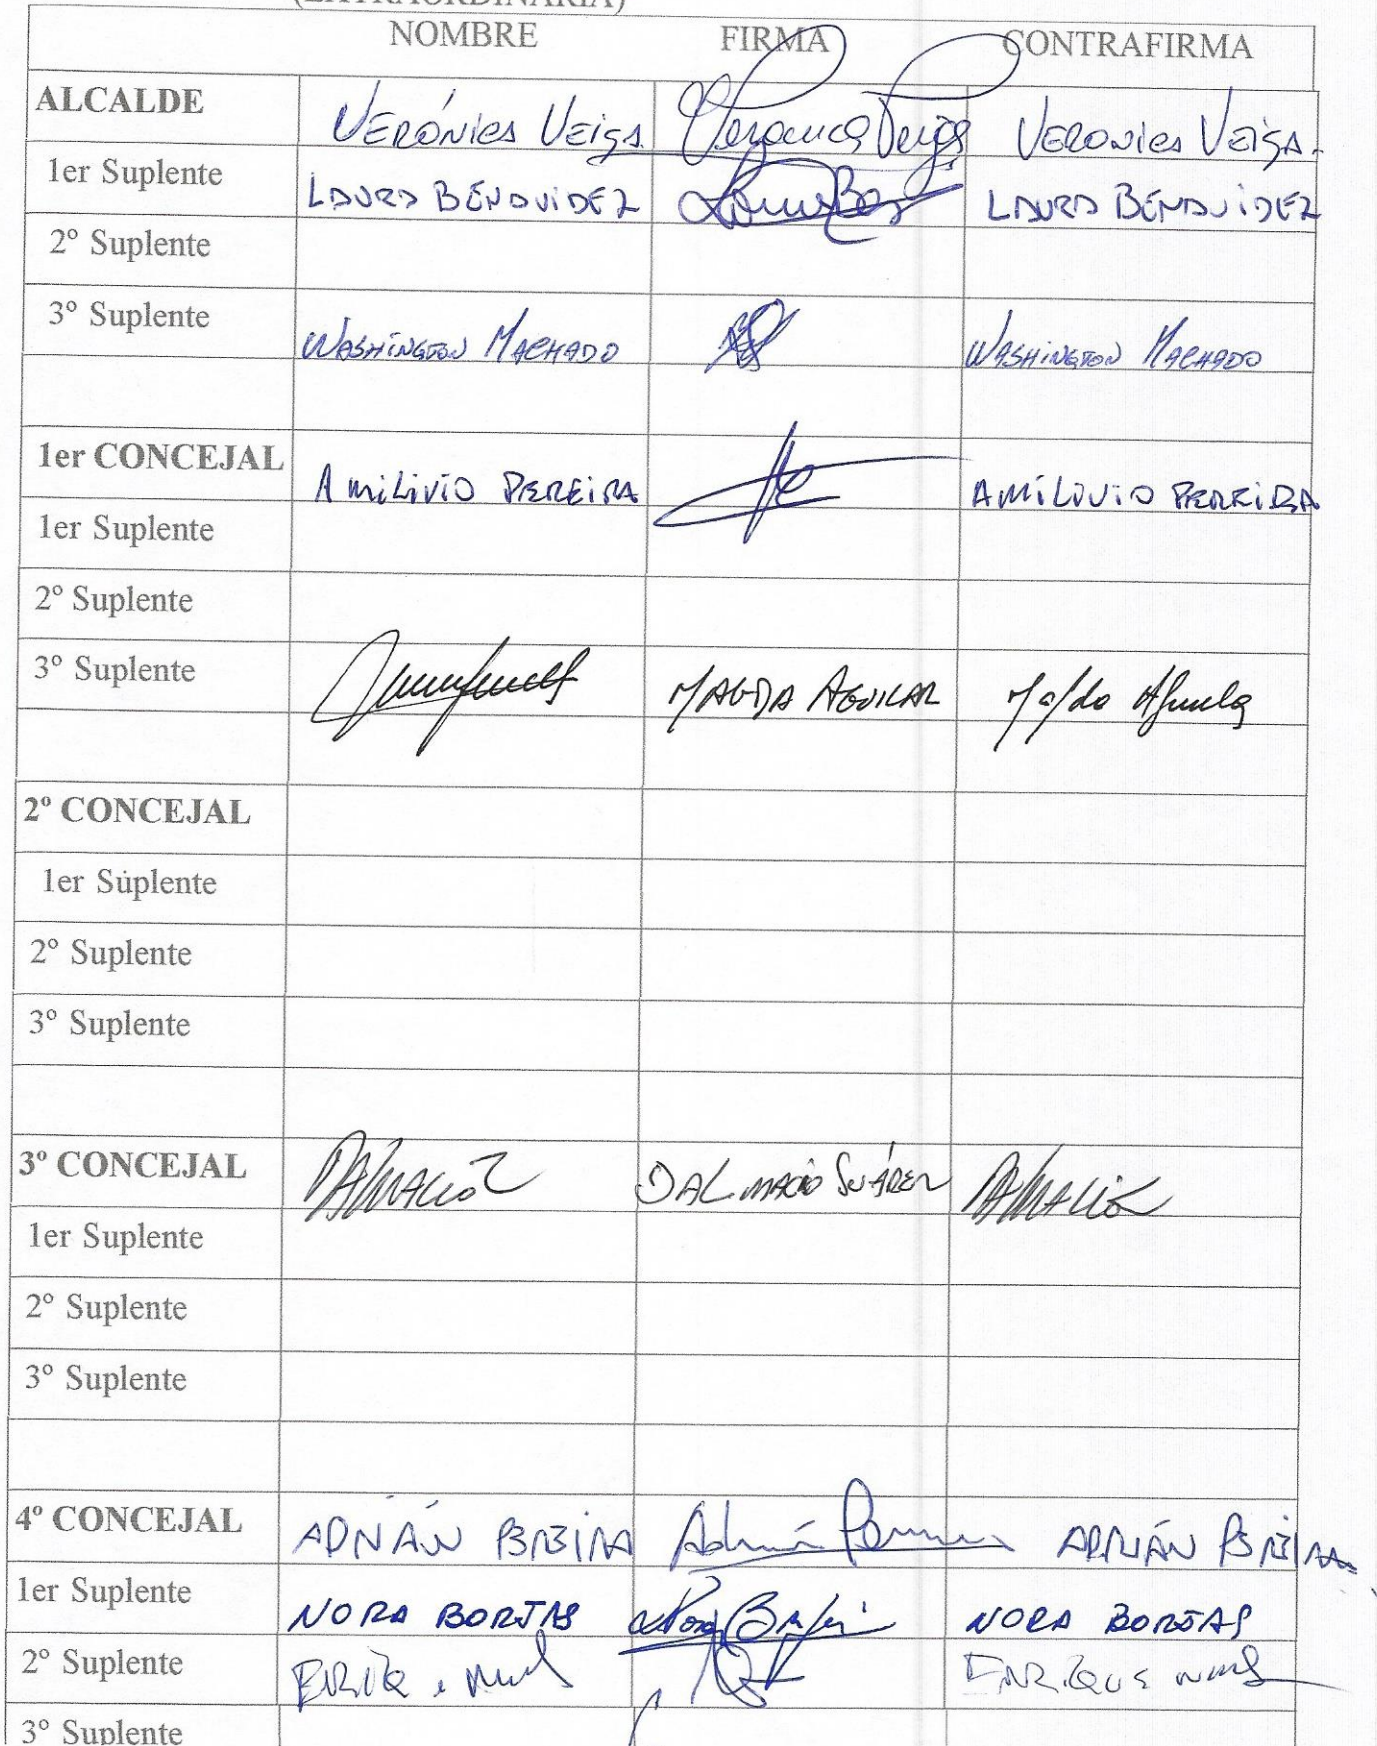 (EXTRAORDINARIA)
NOMBRE FIRMA CONTRAFIRMA
ALCALDE VERÓNICA VEIGA. Veronica Veiga VERONICA VEIGA.
1er Suplente LAURA BENAVIDEZ LAURA BENAVIDEZ
2º Suplente
3º Suplente WASHINGTON MACHADO WASHINGTON MACHADO
1er CONCEJAL AMILIVIO PEREIRA AMILIVIO PEREIRA
1er Suplente
2º Suplente
3º Suplente MAGDA AGUILAR
2º CONCEJAL
1er Suplente
2º Suplente
3º Suplente
3º CONCEJAL DALMACIO SUÁREZ
1er Suplente
2º Suplente
3º Suplente
4º CONCEJAL ADRIÁN PEREIRA Adrián ADRIÁN PEREIRA
1er Suplente NORA BORJAS NORA BORJAS
2º Suplente ENRIQUE
3º Suplente